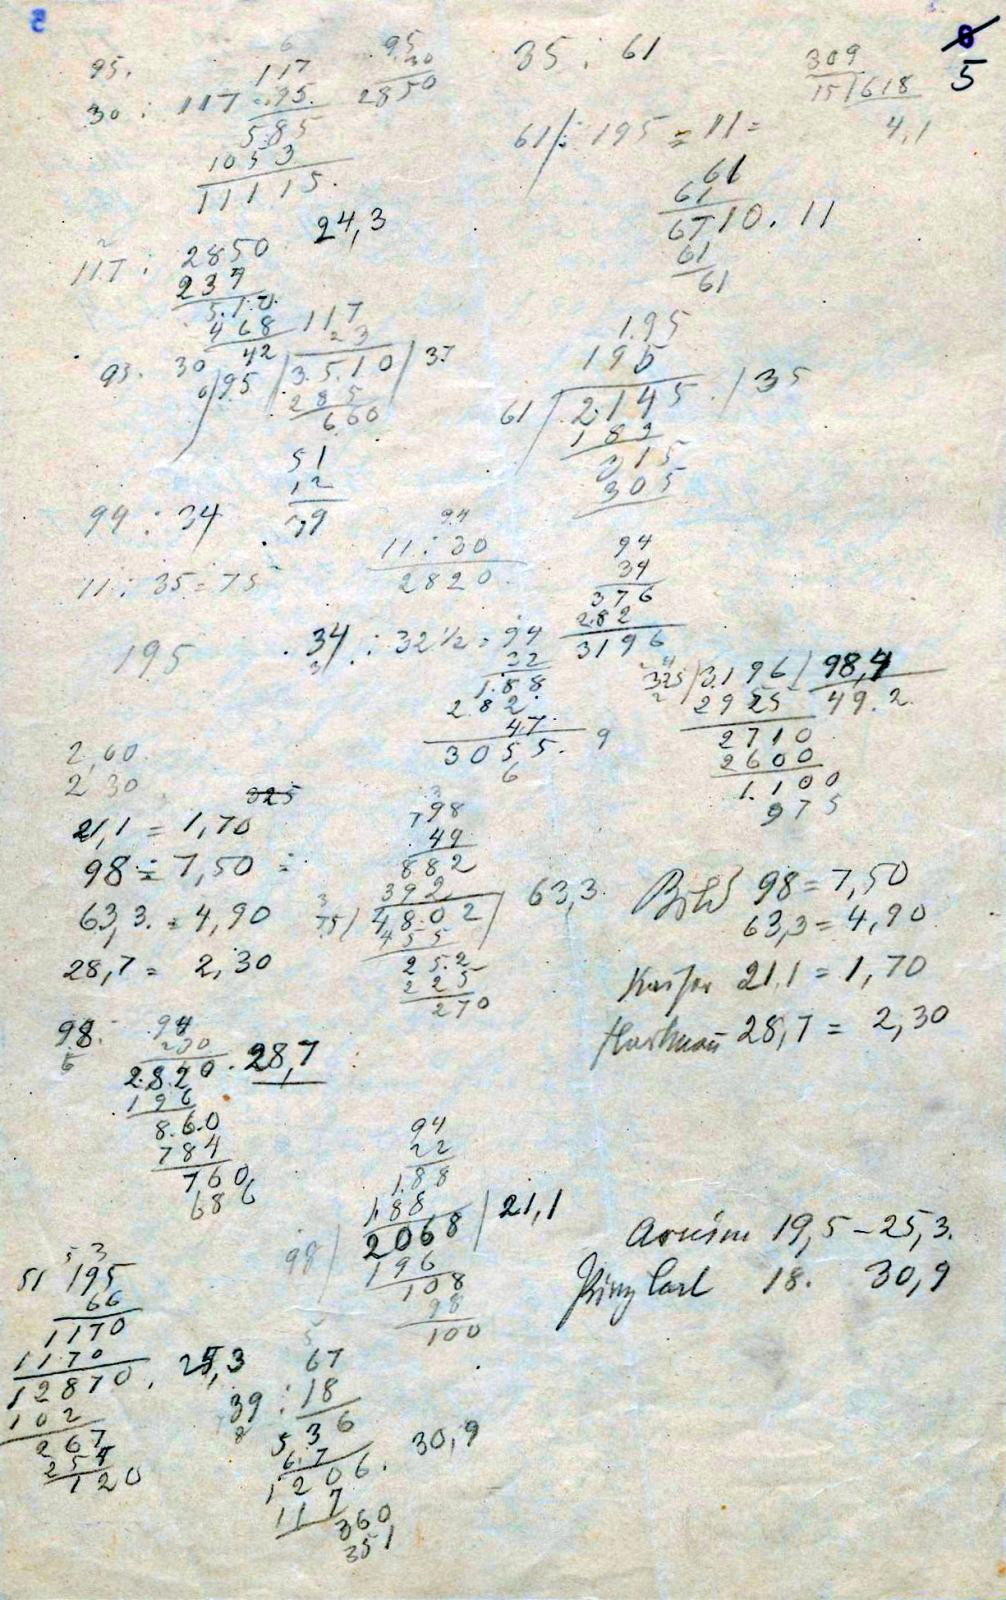 5
8
5
95.
30 : 117
6
117
95.
585
1053
11115.
95
30
2850
35 : 61
309
15/618
4,1
61/: 195 = 11 =
61
61
6710. 11
61
61
24,3
2
117 : 2850
237
5.1.0.
468
42
117
23
93. 30
6/95 /3.5.10/ 37
285
6.60
51
12
39
1.95
195
61 /2.145. /35
183
315
305
99 : 34
11 : 35 = 75
94
11 : 30
2820.
94
34
376
282
3196
195
.34 : 32 ½ = 94
32
1.88
2 8 2.
47.
3055. 9
6
325 /3.196/ 98,4
2
2925 49.2.
2710
2600
1.100
975
2,60.
2,30
325
21,1 = 1,70
98 ÷ 7,50 ÷
63,3. = 4,90
28,7 = 2,30
798
.49
882
392
75/ 4,8.02 / 63,3.
455
2 5.2
225
270
98 = 7,50
63,3 = 4,90
21,1 = 1,70
28,7 = 2,30
98.
6
94
300
2.820. 28,7
196
8.6.0
784
760
686
94
22
1.88
188
98/ 2068 / 21,1
196
108
98
100
19,5 – 25,3.
18. 30,9
5 3
51 195
66
1170
1170
12870. 25,3
102
267
254
120
5
67
39 : 18
8
536
67
1206. 30,9
117
360
351